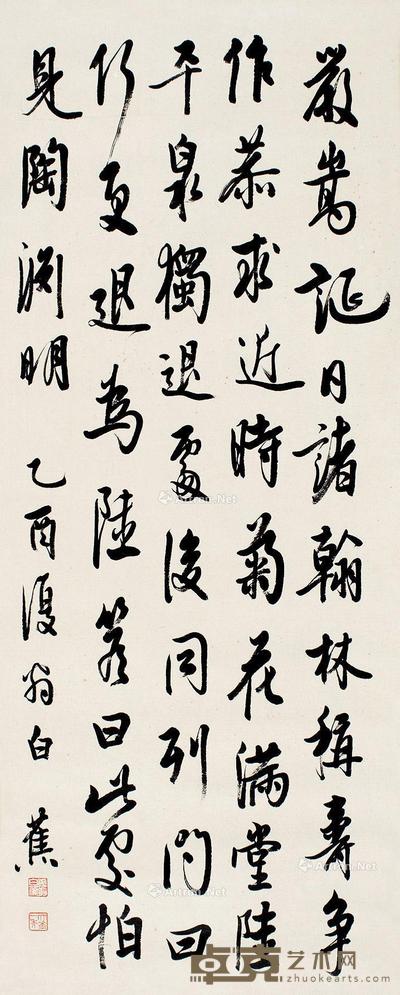 嚴嵩誕日諸翰林稱壽爭
作恭求近時菊花滿堂陸
平泉獨退處後同列問曰
何更退為陸答曰此處怕
見陶淵明
乙酉復翁白蕉
Artron.Net
艺术网
zhuokearts.com